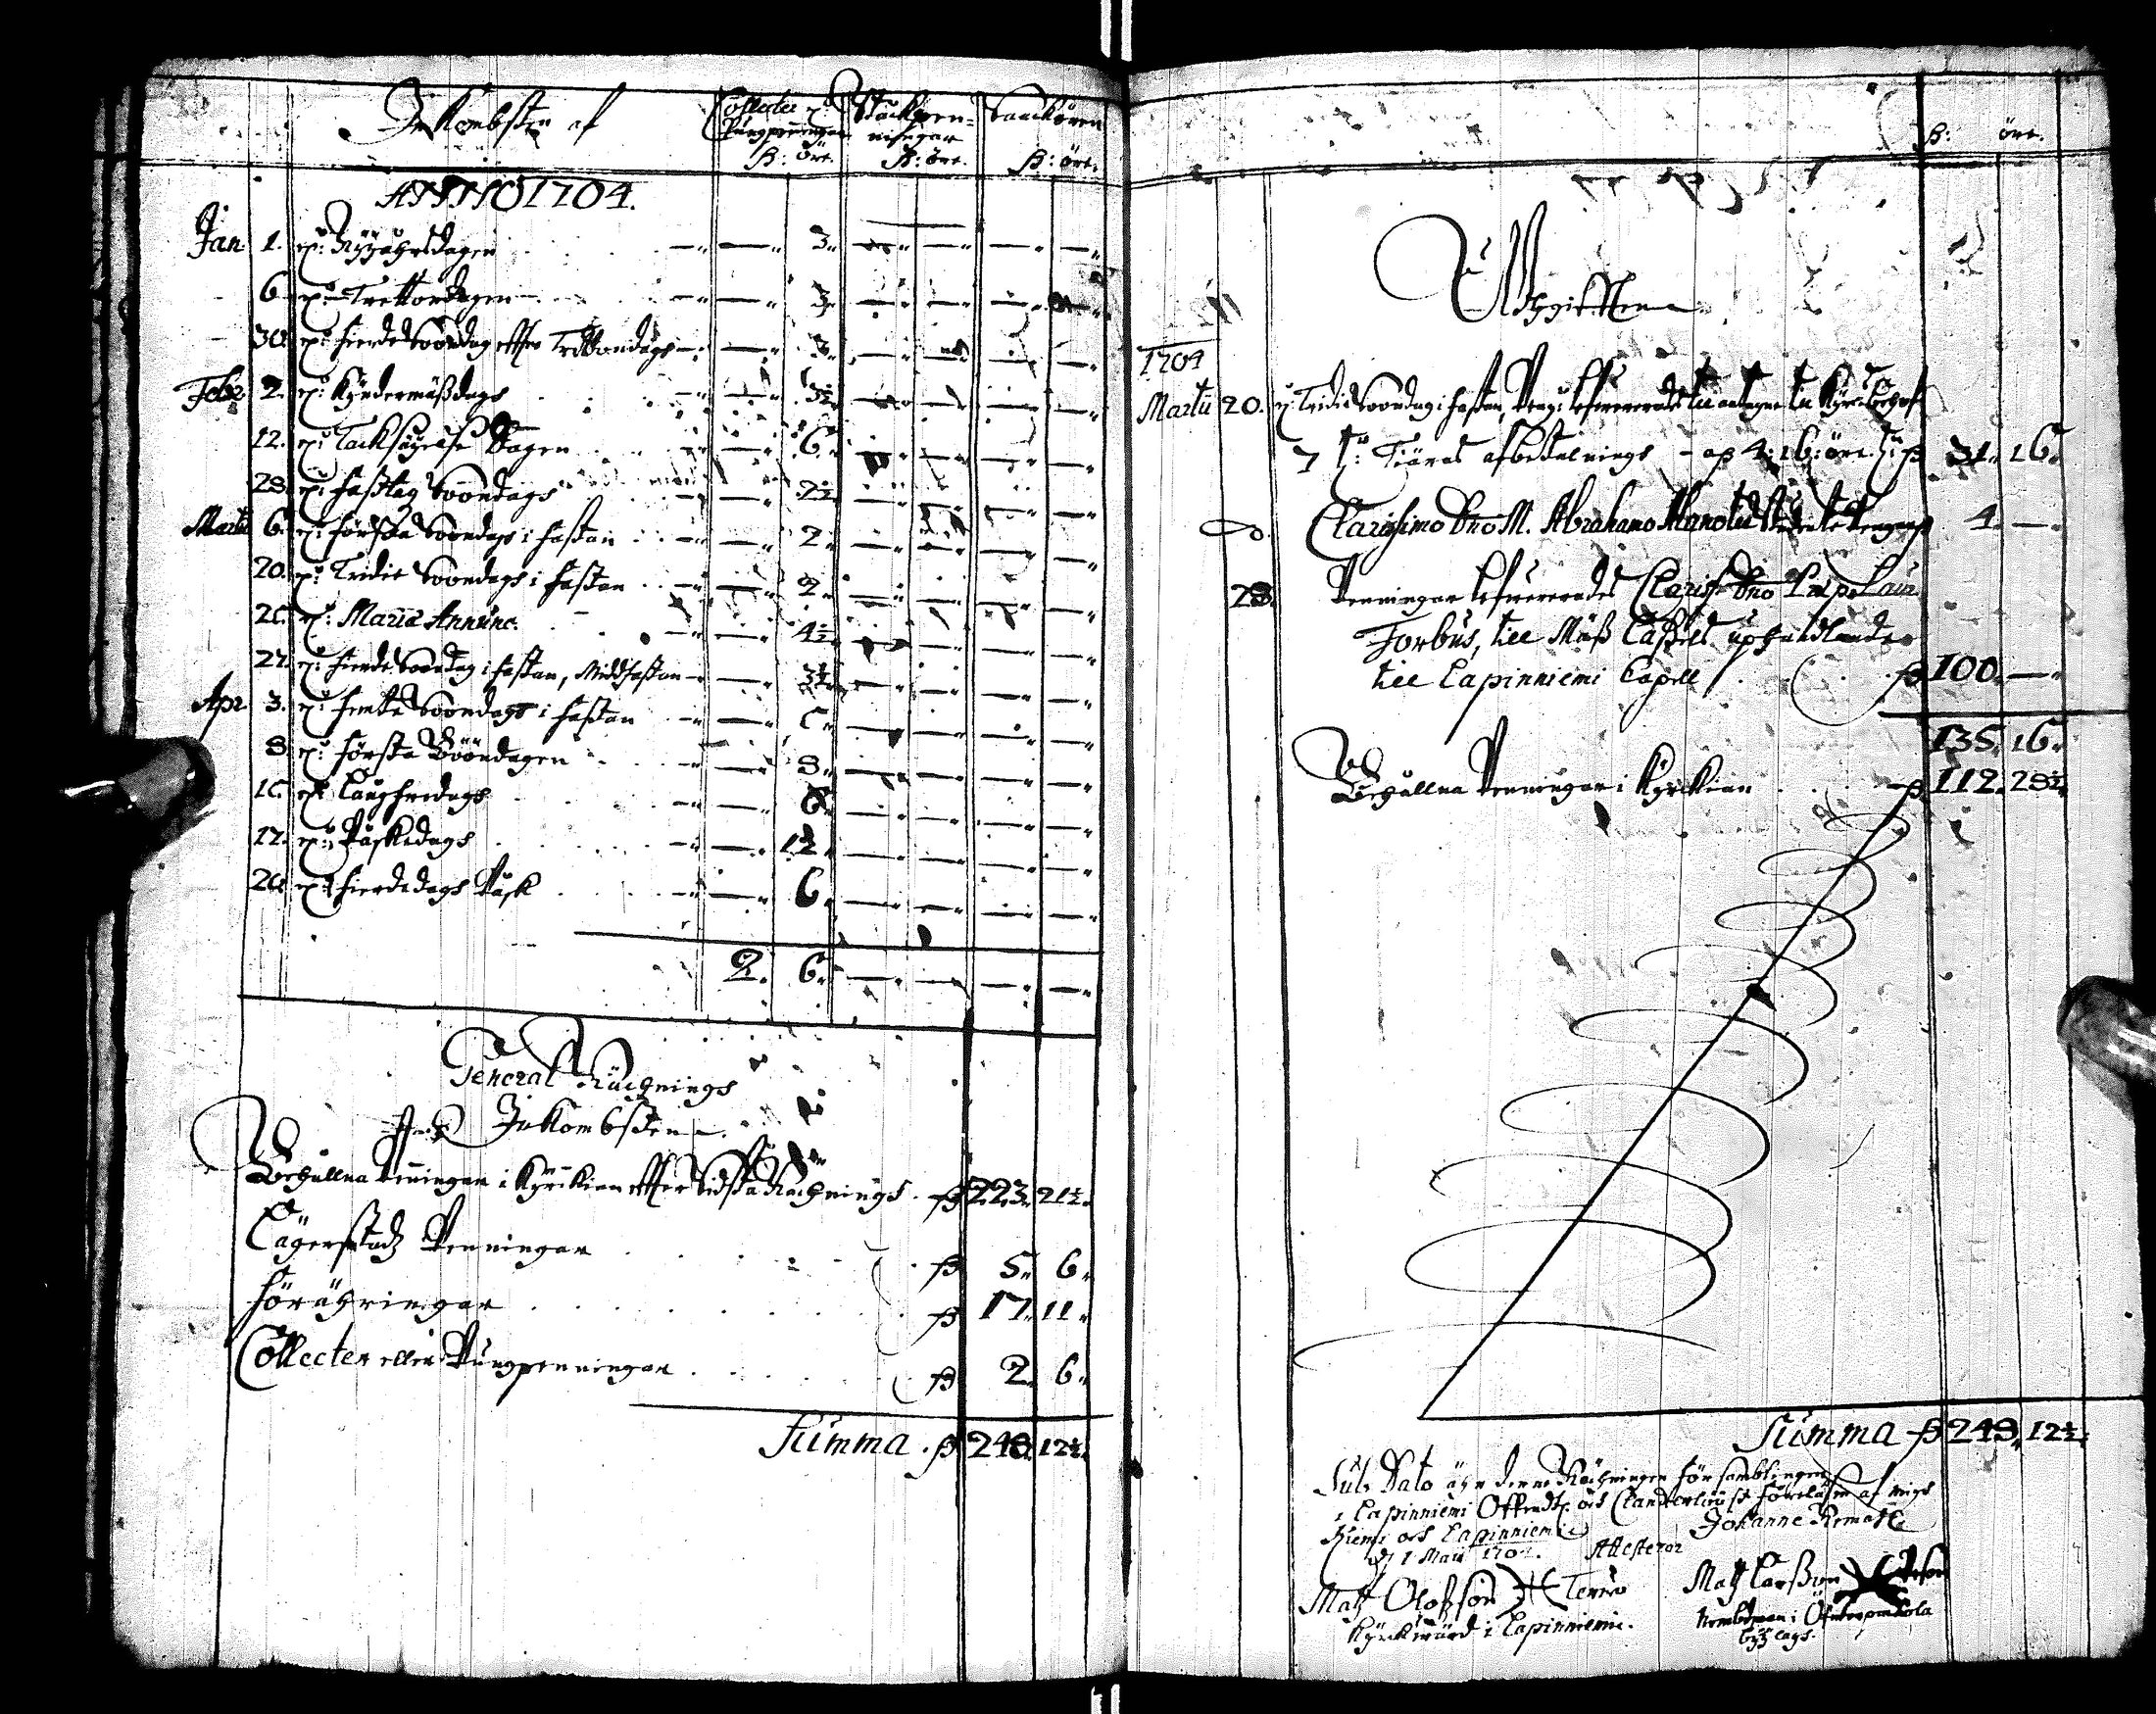 Inkombsten af
Collecter
Pungpenningar
ß: öre.
Stäckpen-
ningar
ß: öre.
Saakören
ß: öre.
ANNO 1704.
Jan 1. Nyåhrsdagen — 3 — — — —
6 Trettondagen — 3 — — —
30. fierde Söndag effter Trettondags — 3 — — — —
Febr 2. Kyndermäßdags — 3½ — — — —
12. Tacksäyelse Dagen — 6 — — — —
28. fastlag Söndags — 2½ — — — —
Martii 6. första Söndags i fastan — 2 — — — —
20. Tridie Söndags i fastan — 2 — — — —
25. Mariæ Annunc. — 4½ — — — —
27. fierde Söndag i fastan, Middfastan — 3½ — — — —
Apr 3. femte Söndags i fastan — 5 — — — —
8. första Böndagen — 8 — — — —
15. Långfredags — 6 — — — —
17. Påskedags — 12 — — — —
20. fierdedags Påsk — 6 — — — —
2. 6. — — — —
General Rächnings
Inkombsten
Behållna Penningar i Kyrckian effter sidsta Rächnings ß 223. 21½.
Lägerstadz Penningar ß 5. 6.
Förähringar ß 17. 11.
Collecter eller Pungpenningar ß 2. 6.
Summa ß 248. 12½.
ß: öre.
Uthgifterne
1704
Martii 20. Tridie Söndag i fastan, Peng: lefwererades till
7 t: Tiäras afbetalnings - ap 4: 16: öre ß 31. 16.
Clarissimo Dno M. Abrahamo 4. —
28. Penningar lefwererades Clariss Dno Præp. Laur.
Forbus, till Mäß uphandlande
till Lapinniemi Capell ß 100. —
135. 16.
Behållna Penningar i Kyrckian ß 112. 28½.
Summa ß 248. 12½.
Sub Dato ähr denne Rächningen församblingen
i Lapinniemi Offendtl: och föreläsen af migh
och Lapinniemi Johanne
d 1 Maii 1704. Attesterar
Matz Olofson Terwo Matz Larßon
Kyrkiwärd i Lapinniemi. Nembdeman i